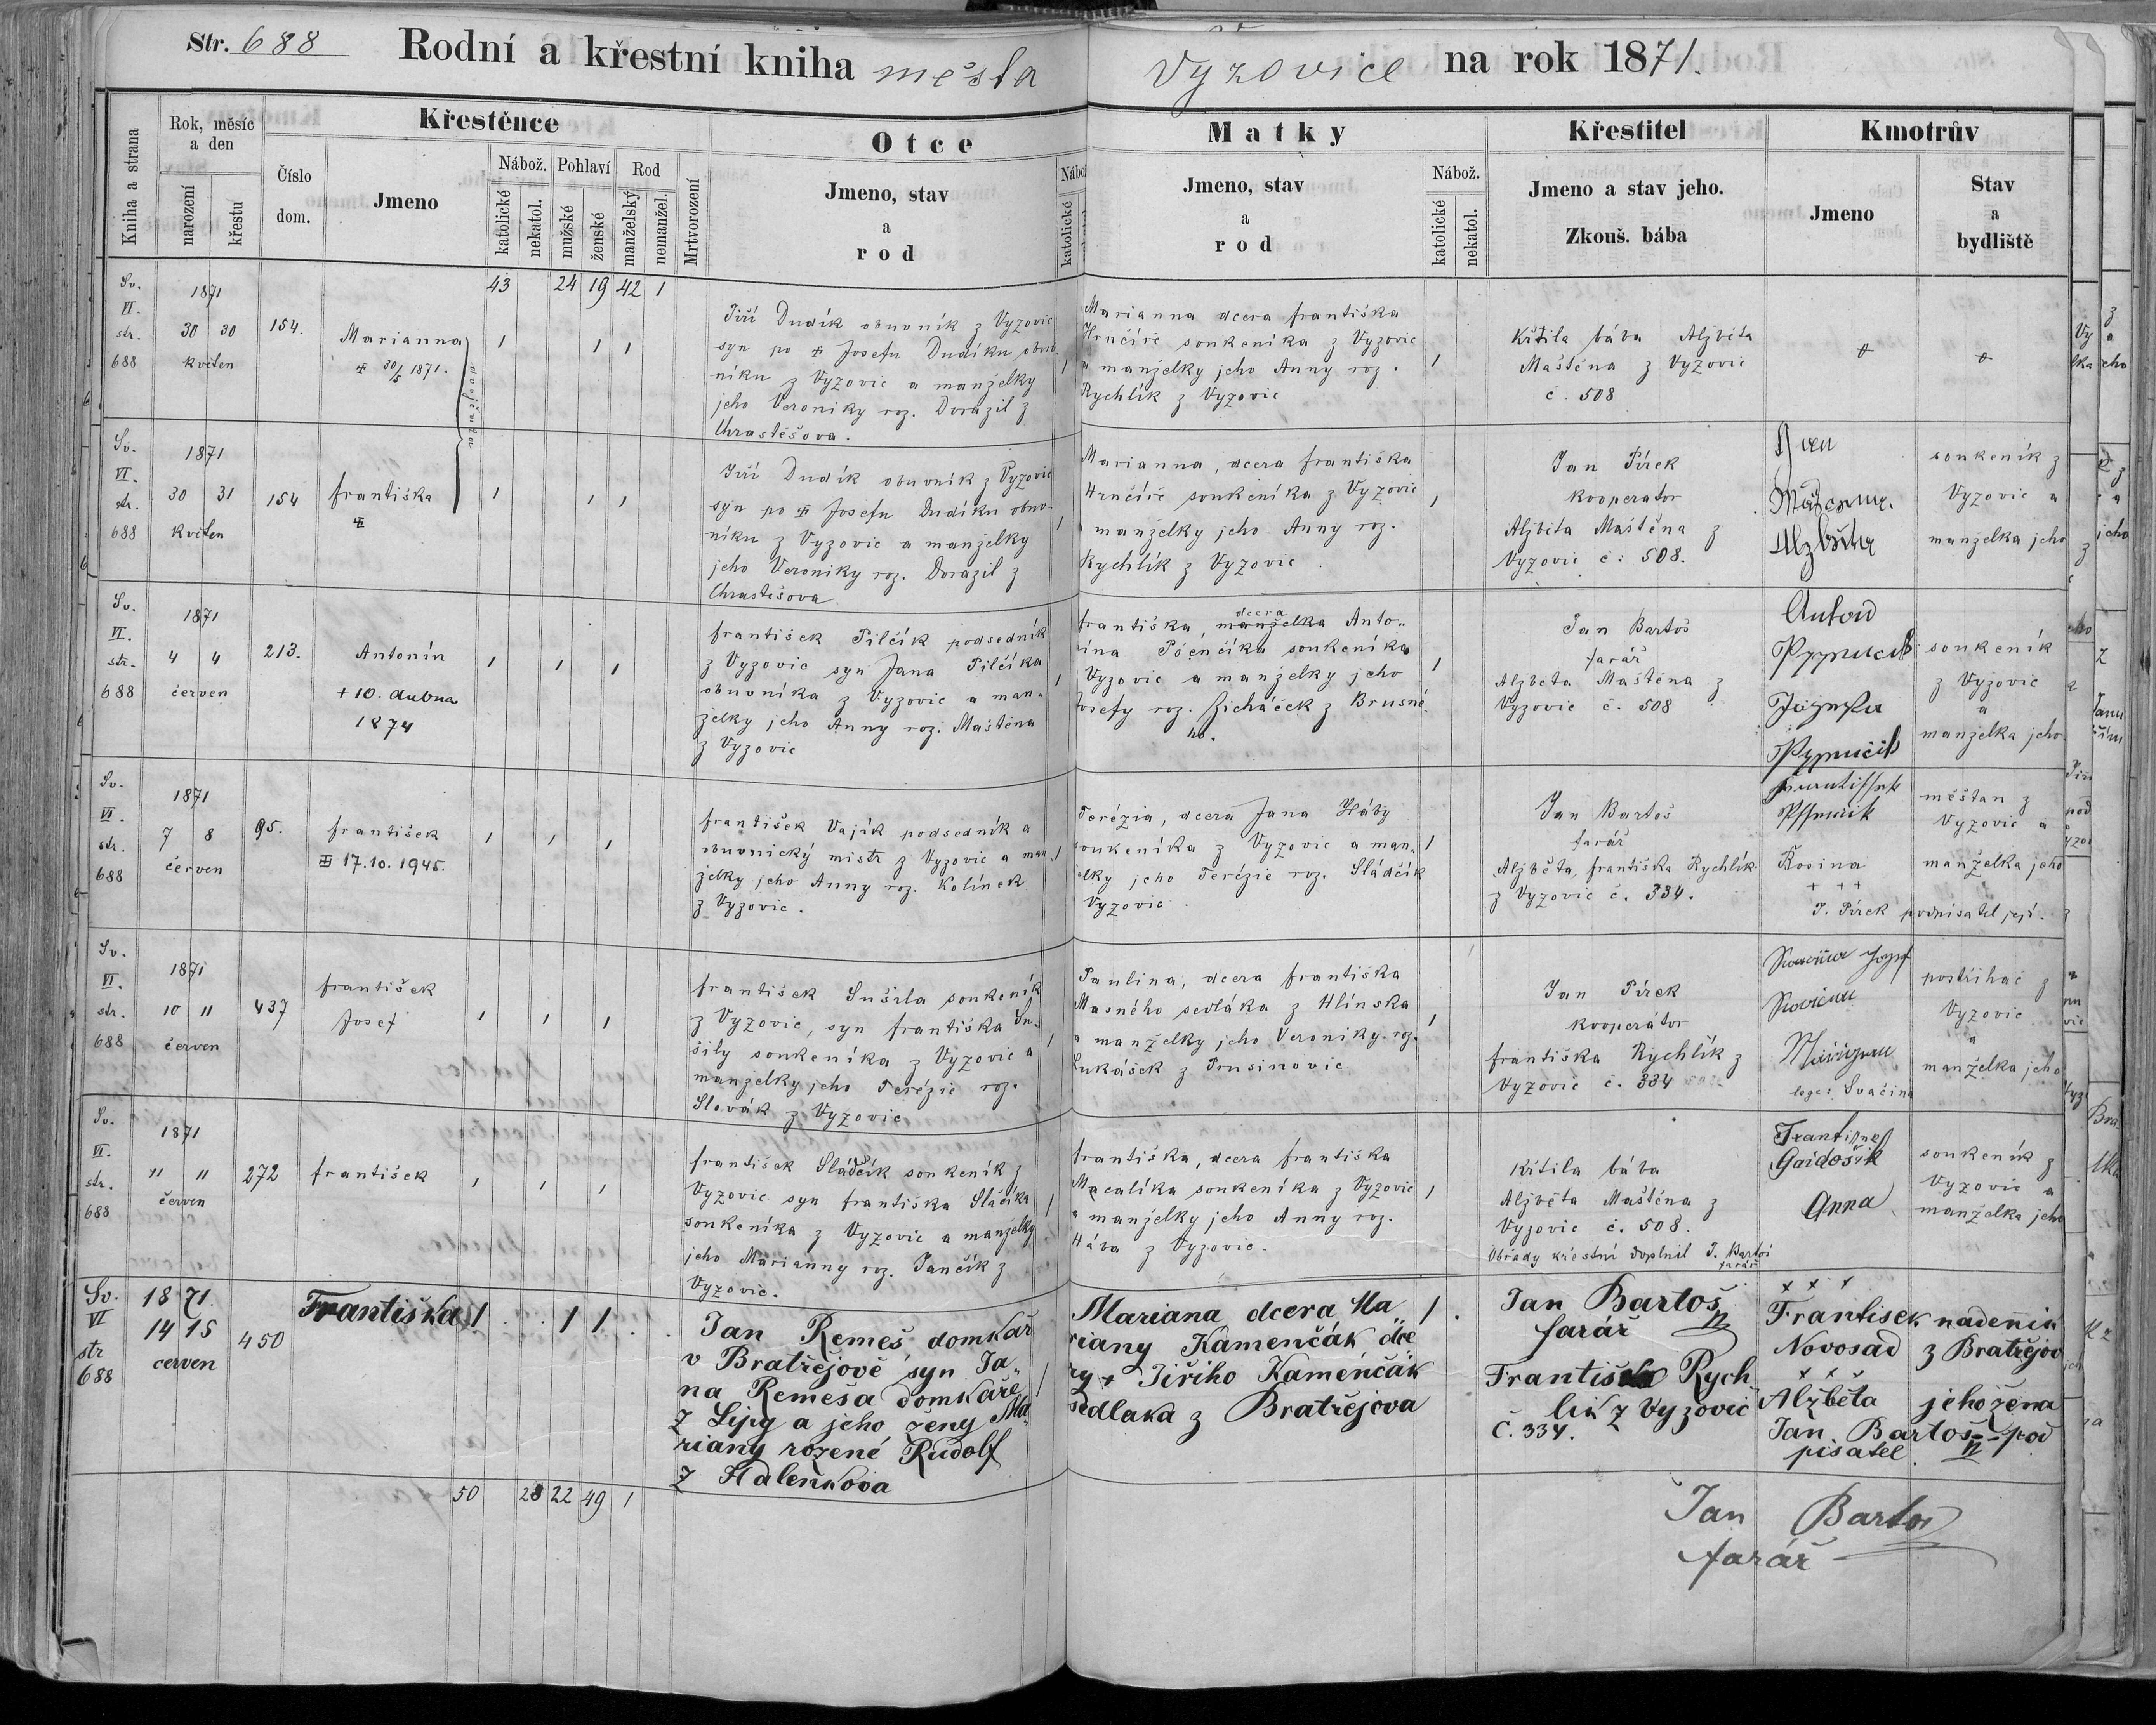 Str. 688 Rodní a křestní kniha města Vyzovice na rok 1871.
Kniha a strana
Rok, měsíc a den
narození
křestu
Číslo dom.
Křestěnce
Jmeno
Nábož.
katolické
nekatol.
Pohlaví
mužské
ženské
Rod
manželský
nemanžel.
Mrtvorození
Otce
Jmeno, stav
a
rod
katolické
Matky
Jmeno, stav
a
rod
Nábož.
katolické
nekatol.
Křestitel
Jmeno a stav jeho.
Zkouš. bába
Kmotrův
Jmeno
Stav
a
bydliště
43 24 19 42 1
Sv.
VI.
str.
688
1871
30 30
květen
154.
Marianna
30/5 1871.
dvojčata
1 1 1
Jiří Dudík obuvník z Vyzovic
syn po Josefu Dudíku obuv-
níku z Vyzovic a manželky
jeho Veroniky roz. Doražil z
Chrastěšova.
1
Marianna dcera františka
Hrnčíře soukeníka z Vyzovic
a manželky jeho Anny roz.
Rychlík z Vyzovic
1
Křtila bába Alžběta
Maštěna z Vyzovic
č. 508
Sv.
VI.
str.
688
1871
30 31
květen
154
františka
1 1 1
Jiří Dudík obuvník z Vyzovic
syn po Josefu Dudíku obuv-
níku z Vyzovic a manželky
jeho Veroniky roz. Doražil z
Chrastěšova
1
Marianna, dcera františka
Hrnčíře soukeníka z Vyzovic
a manželky jeho Anny roz.
Rychlík z Vyzovic.
1
Jan Pírek
kooperator
Alžběta Maštěna z
Vyzovic č. 508.
Alzběta
soukeník z
Vyzovic a
manželka jeho
Sv.
VI.
str.
688
1871
4 4
červen
213.
Antonín
+ 10. dubna
1874
1 1 1
františek Pilčík podsedník
z Vyzovic syn Jana Pilčíka
obuvníka z Vyzovic a man-
želky jeho Anny roz. Maštěna
z Vyzovic
1
dcera
františka, manželka Anto-
nína Pšenčíka soukeníka
Vyzovic a manželky jeho
Josefy roz. Zicháček z Brusné-
ho.
1
Jan Bartoš
farář
Alžběta Maštěna z
Vyzovic č. 508
soukeník
z Vyzovic
a
manželka jeho
Sv.
VI.
str.
688
1871
7 8
červen
95.
františek
17.10.1945.
1 1 1
františek Vajík podsedník a
obuvnický mistr z Vyzovic a man-
želky jeho Anny roz. Kolínek
z Vyzovic.
1
Terézia, dcera Jana Háby
soukeníka z Vyzovic a man-
želky jeho Terézie roz. Sládčík
Vyzovic.
1
Jan Bartoš
farář
Alžběta, františka Rychlík
z Vyzovic č. 334.
Rosina
+ + +
J. Pírek podpisatel její.
měštan z
Vyzovic a
manželka jeho
Sv.
VI.
str.
688
1871
10 11
červen
437
františek
Josef
1 1 1
františek Sušila soukeník
z Vyzovic, syn františka Su-
šily soukeníka z Vyzovic a
manželky jeho Terézie roz.
Slovák z Vyzovic
1
Paulina, dcera františka
Masného sedláka z Hlínska
a manželky jeho Veroniky roz.
Lukášek z Prusinovic
1
Jan Pírek
kooperátor
františka Rychlík z
Vyzovic č. 334
lege: Svačina
postřihač z
Vyzovic
a
manželka jeho
Sv.
VI.
str.
688
1871
11 11
červen
272
františek
1 1 1
františek Sládčík soukeník z
Vyzovic syn františka Sláčíka
soukeníka z Vyzovic a manželky
jeho Marianny roz. Jančík z
Vyzovic.
1
františka, dcera františka
Macalíka soukeníka z Vyzovic
a manželky jeho Anny roz.
Hába z Vyzovic.
1
Křtila bába
Alžběta Maštěna z
Vyzovic č. 508.
Obřady křestní doplnil J. Bartoš
farář
Gaidošik
Anna
soukeník z
Vyzovic a
manželka jeho
Sv.
VI
str
688
1871.
14 15
červen
450
Františka
1 1 1
Jan Remeš domkař
v Bratřejově syn Ja-
na Remeša domkaře
z Lipy a jeho ženy Ma-
riany rozené Rudolf
z Halenkova
1
Mariana dcera Ma-
riany Kamenčák dce
ry + Jiřiho Kamenčák
sedlaka z Bratřejova
1
Jan Bartoš
farář
Františka Rych
lik z Vyzovic
Č. 334.
x x x
Frantisek nadenik
Novosad z Bratřejov
x x x
Alžběta jeho žena
Jan Bartoš pod
pisatel
50 28 22 49 1
Jan Bartoš
farář